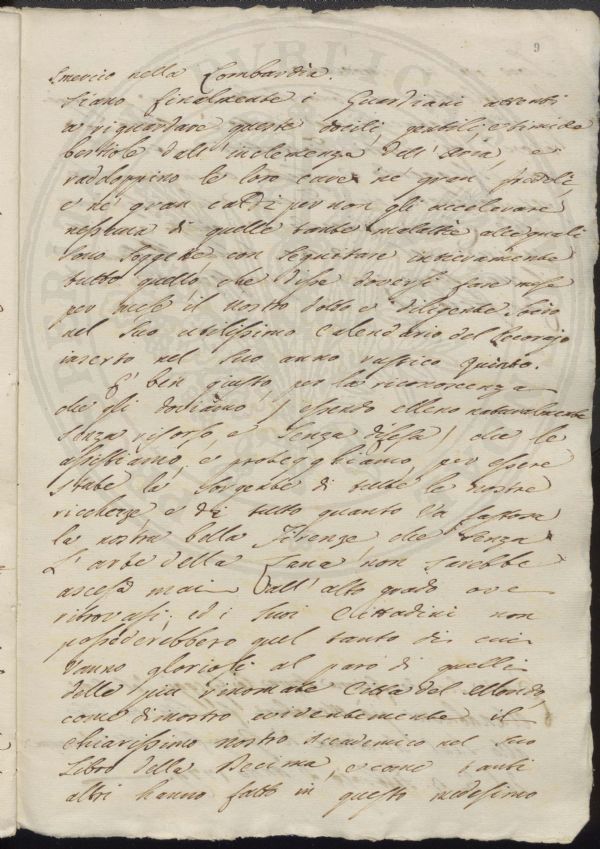 9
smercio nella Lombardia.
Siano finalmente i Guardiani attenti
a riguardare queste docili, gentili, e timide
bestiole dall' inclemenza dell' Aria, e
raddoppino le loro cure ne' gran freddi
e ne' gran caldi per non gli accelerare
nessuna di quelle tante malattie alle quali
sono soggette con seguitare intieramente
tutto quello, che disse doversi fare mese
per mese il nostro dotto e diligente
nel suo utilissimo Calendario del Pecorajo
inserto nel suo anno rustico quinto.
E' ben giusto, per la riconoscenza
che gli dobbiamo, essendo elleno naturalmente
senza risorse, e senza difesa, che le
assistiamo, e protegghiamo, per essere
state la sorgente di tutte le nostre
ricchezze e di tutto quanto
la nostra bella Firenze che senza
L' arte della Lana non sarebbe
ascesa mai all' alto grado ove
ritrovasi, ed i suoi Cittadini non
possederebbero quel tanto di cui
vanno gloriosi al paro di quelli
delle più rinomate Città del Mondo,
come dimostrò evidentemente il
chiarissimo nostro accademico nel suo
Libro della Decima, e come tanti
altri hanno fatto in questo medesimo